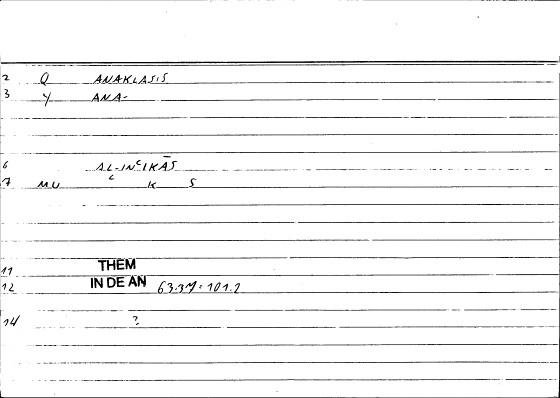 2 Q ANAKLASIS
3 Y ANA-
6 AL-INʿIKĀS
7 MU ʿ K S
11 THEM
12 IN DE AN 63.34 = 101.2
14 ?